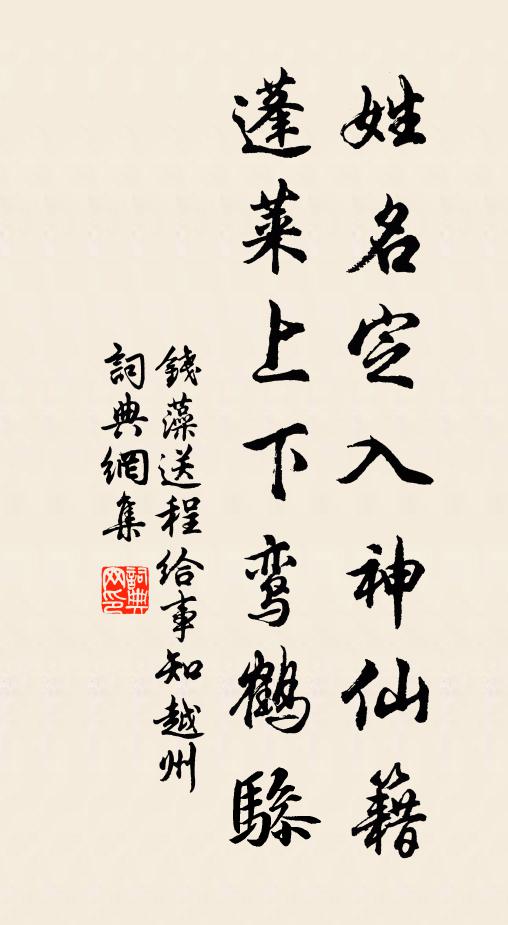 姓名定入神仙籍
蓬莱上下鸾鹤骖
錢藻送程给事知越州
詞典網集
詞典网印